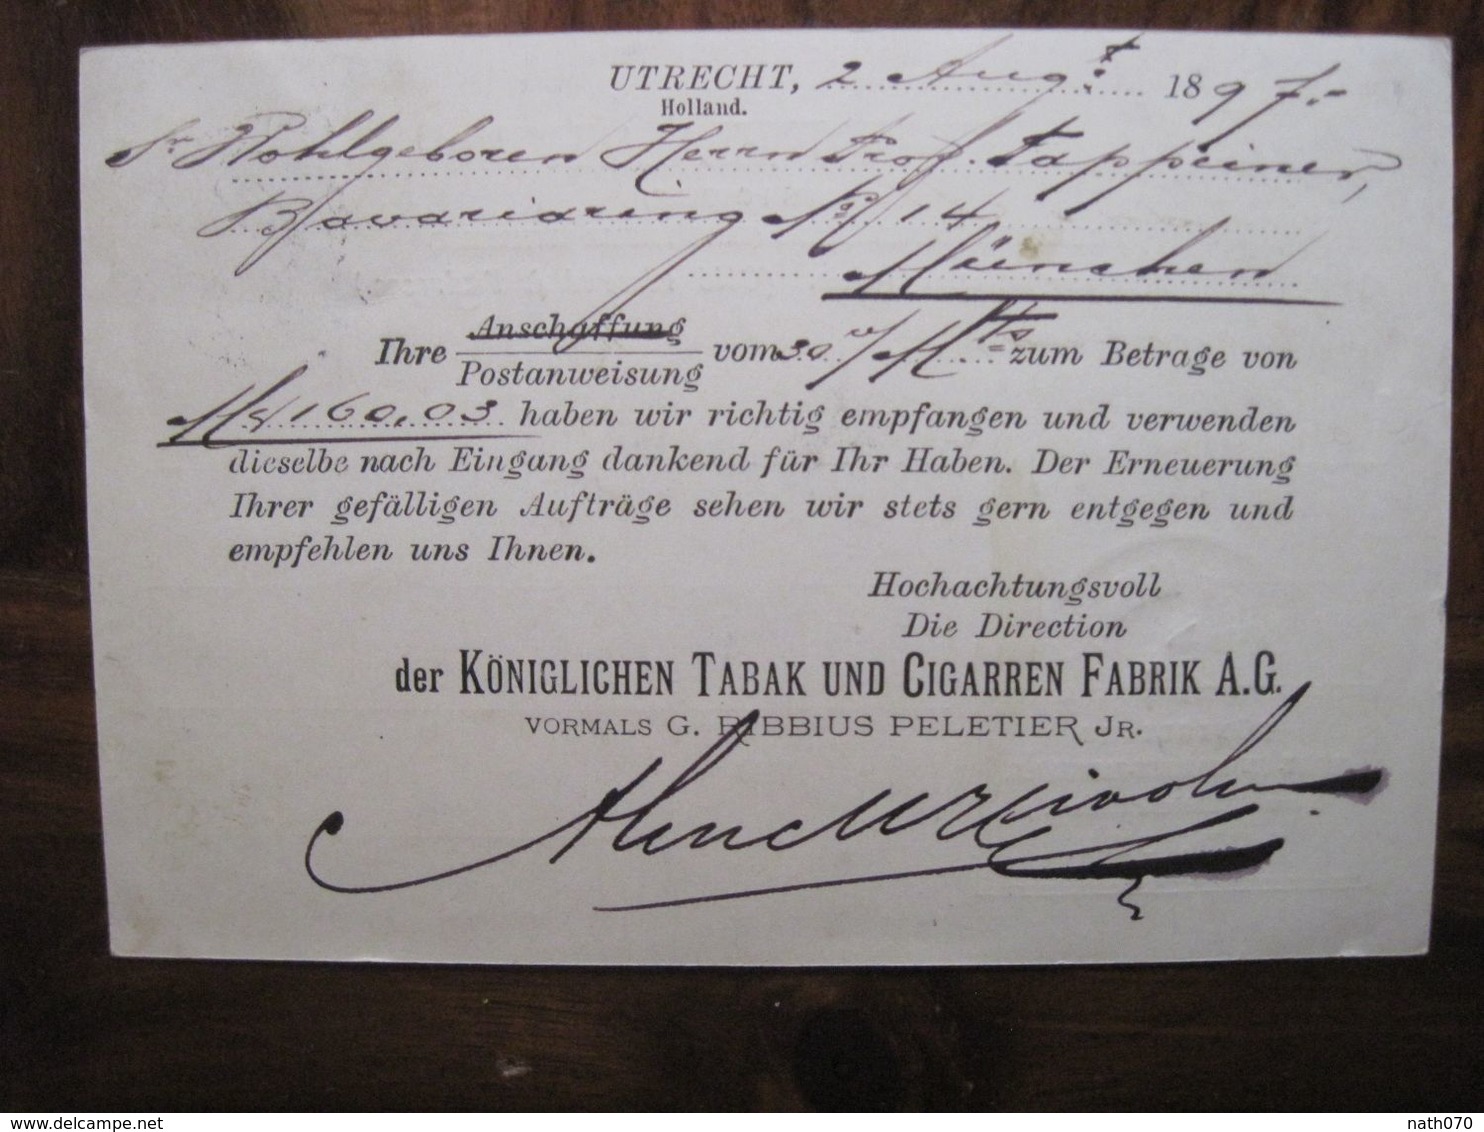 UTRECHT, 2 Aug.t 1897.-
Holland.
Sr. Wohlgeboren Herrn Prof. Tappeiner,
Bavariaring No 14
München
Ihre Anschaffung
Postanweisung vom 30 v/Mts zum Betrage von
Mk 160,03 haben wir richtig empfangen und verwenden
dieselbe nach Eingang dankend für Ihr Haben. Der Erneuerung
Ihrer gefälligen Aufträge sehen wir stets gern entgegen und
empfehlen uns Ihnen.
Hochachtungsvoll
Die Direction
der KÖNIGLICHEN TABAK UND CIGARREN FABRIK A.G.
VORMALS G. RIBBIUS PELETIER JR.
delcampe.net
nath070